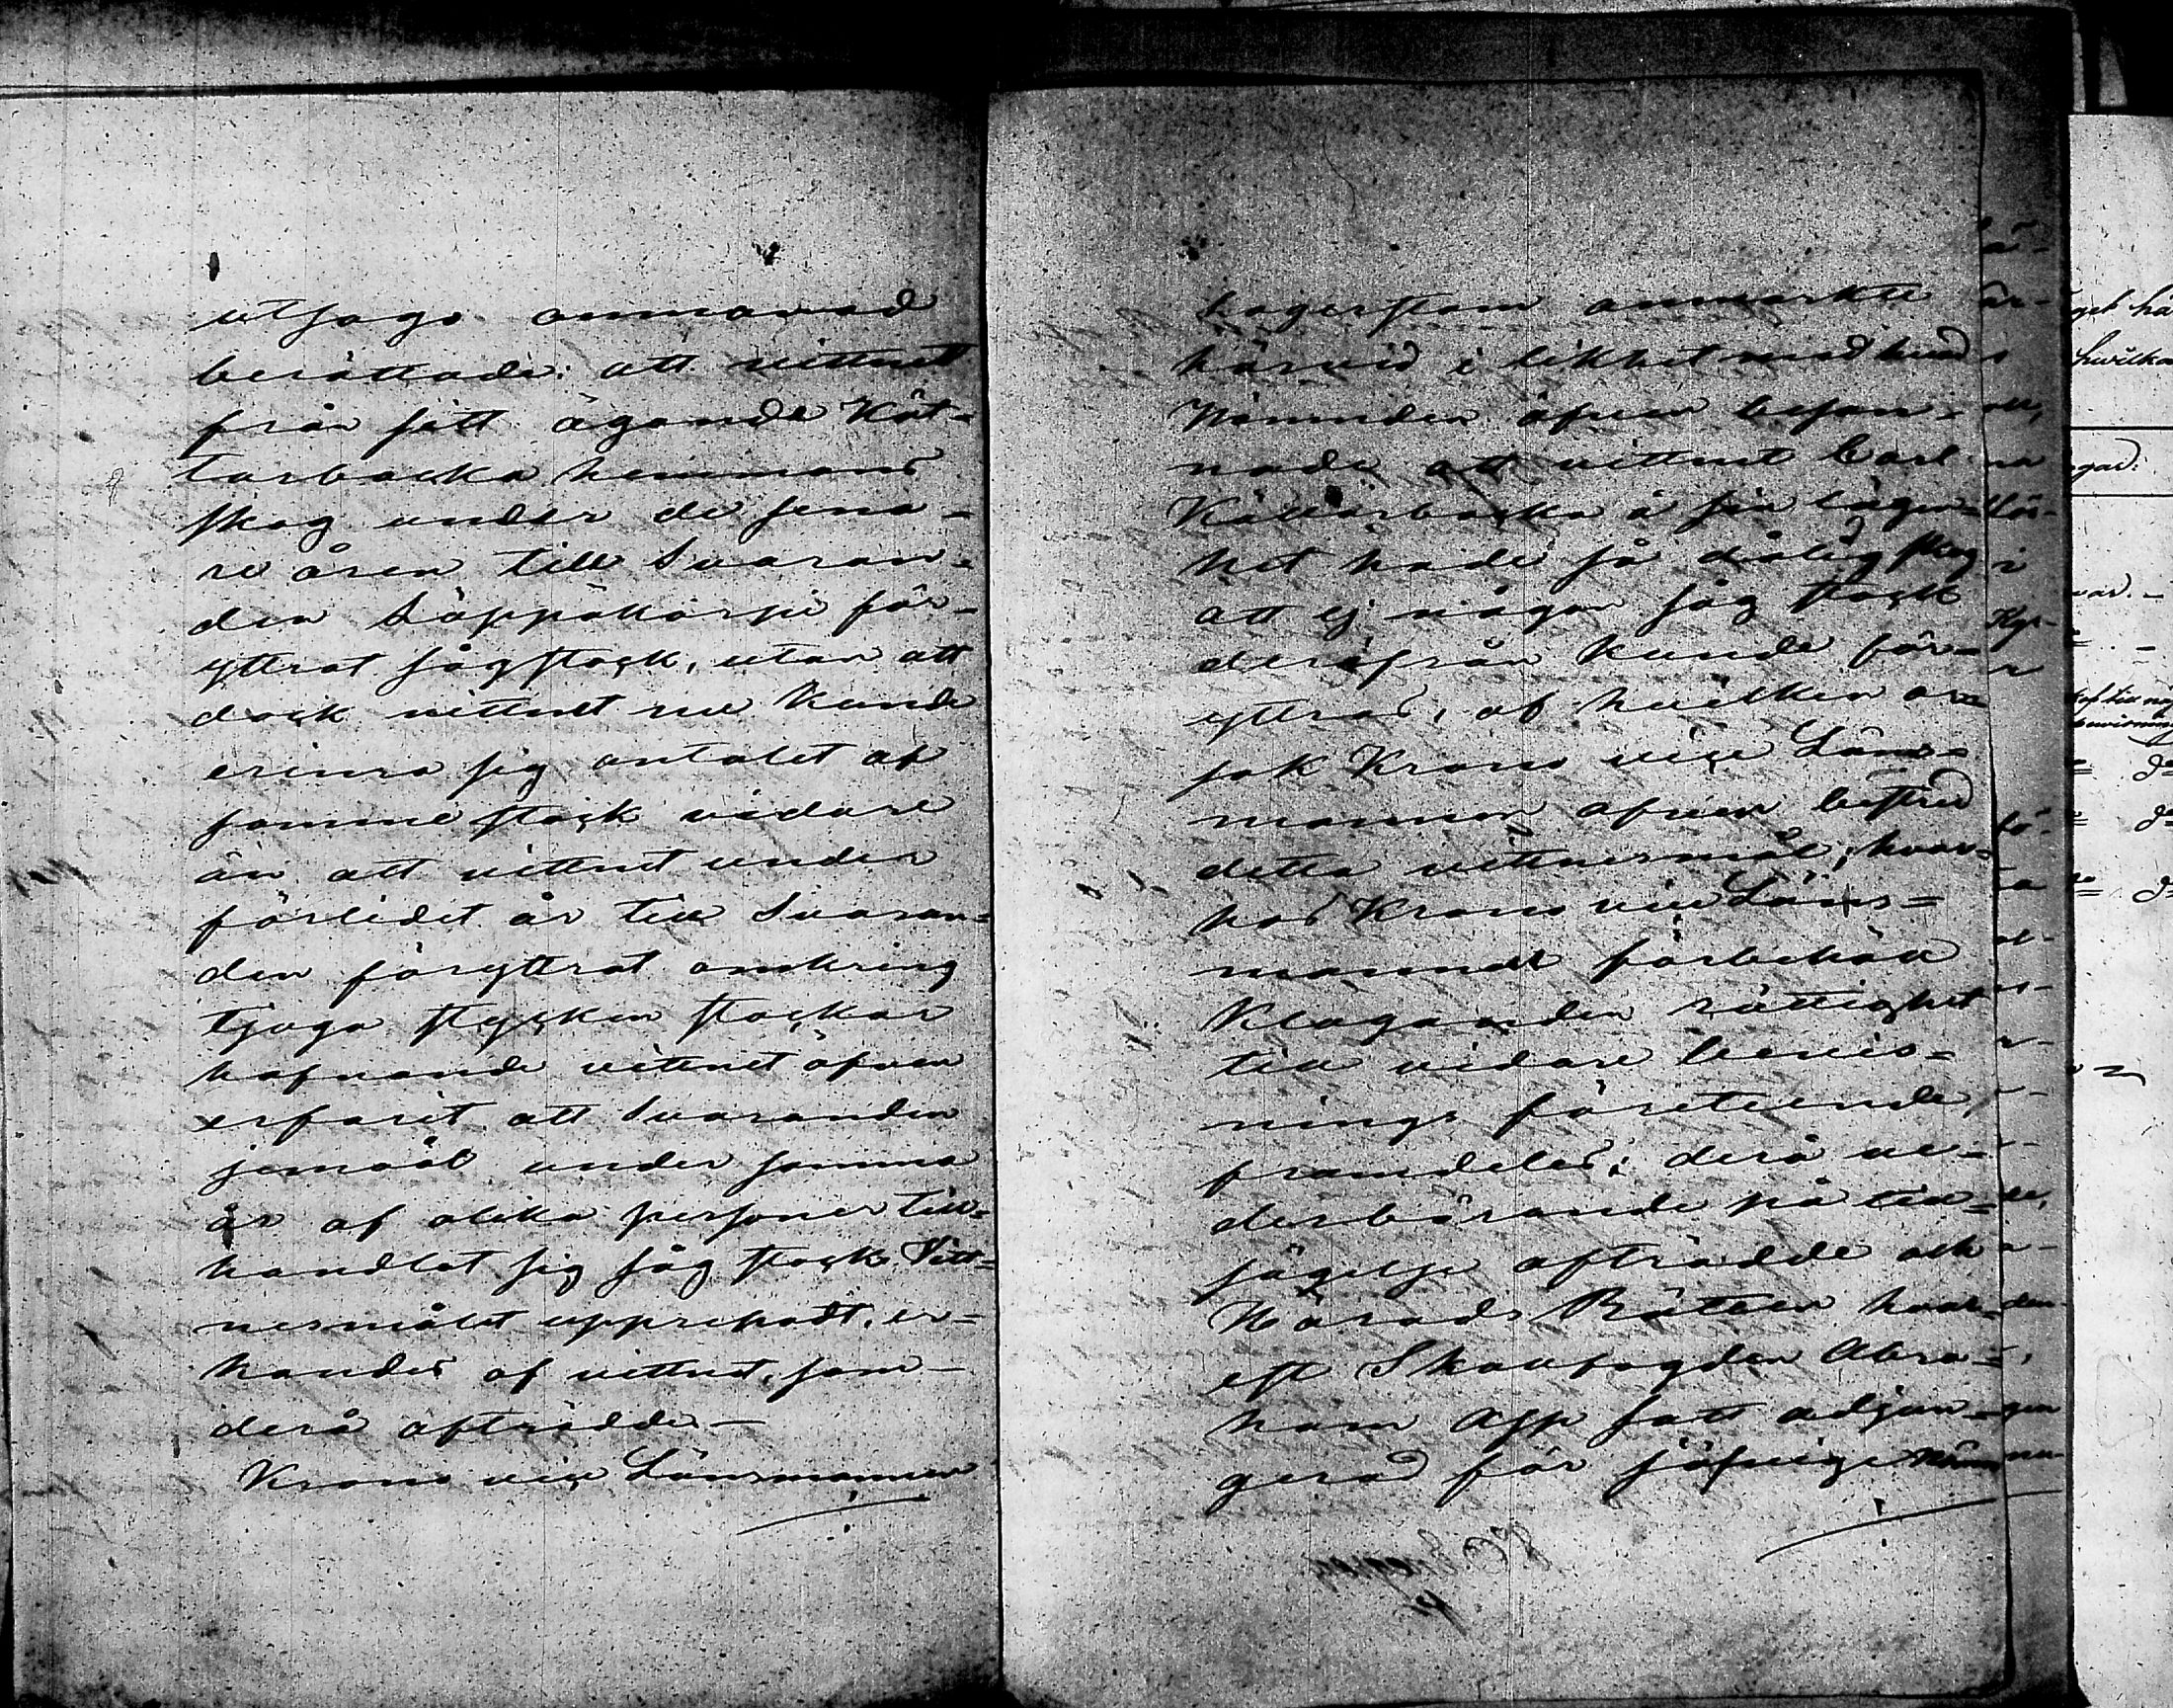 utsago anmanad
berättade: att vittnet
från sitt ägande Kät-
tarbacka hemmans
skog under de sena-
re åren till Svaran-
den Läppäkorpi för-
yttrat sågstock, utan att
dock vittnet nu kunde
erinra sig antalet af
samme stock vidare
än att vittnet under
förlidet år till Svaran-
den föryttrat omkring
tjugo stycken stockar
hafvande vittnet äfven
erfarit att Svaranden
jemväl under samma
år af olika personer till-
handlat sig såg stock. Vitt-
nesmålet upprepadt, er-
kändes af vittnet, som
derå afträdde.—
Krono vice Länsmannen
Lagerstam anmärkte
härvid i likhet med hvad
Nämnden äfven besan-
nade att vittnet Carl
Kättärbacka å sin lägen-
het hade så dålig skog
att ej någon såg stock
derifrån kunde för-
yttras, af hvilken or-
sak Krono vice Läns-
mannen äfven bestred
detta vittnesmål; hvar-
hos Krono vice Läns-
mannen förbehöll
Klaganden rättighet
till vidare bevis-
nings företeende
framdeles; derå ve-
derbörande på till-
sägelse afträdde och
Härads Rätten hvar-
est Skallfogden Abra-
ham App satt adjun-
gerad för jäfvige Näm